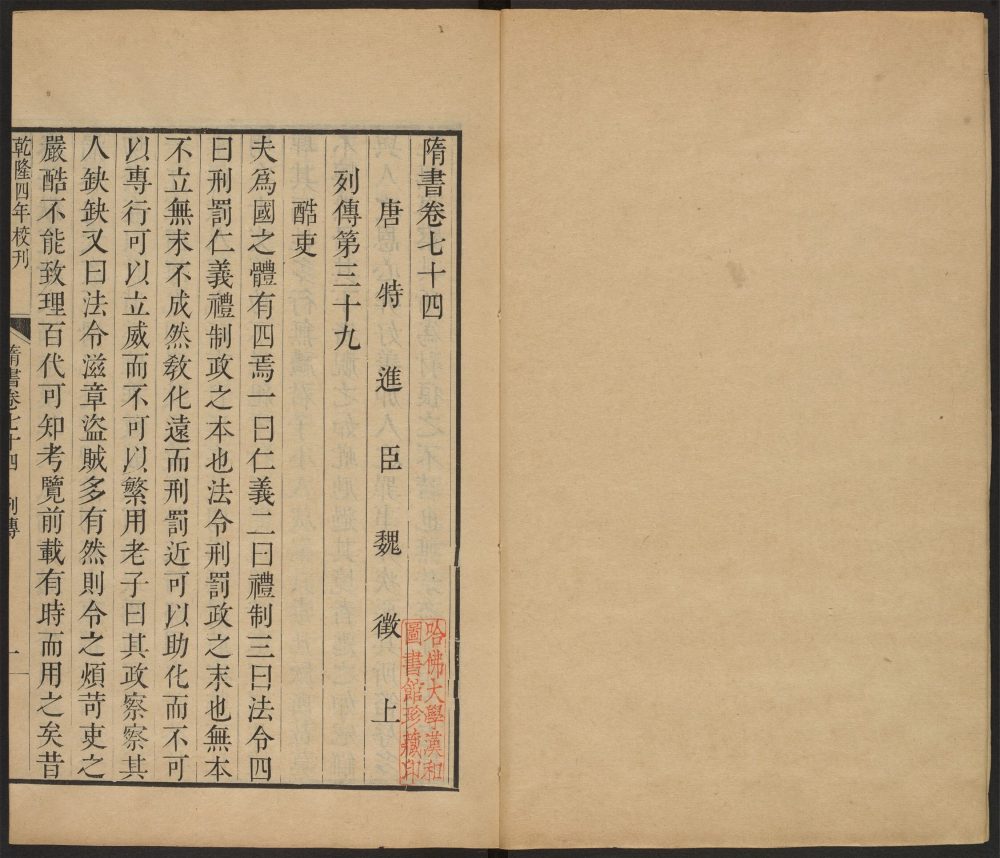 隋書卷七十四
唐特進臣魏徵上
列傳第三十九
酷吏
夫爲國之體有四焉一曰仁義二曰禮制三曰法令四
曰刑罰仁義禮制政之本也法令刑罰政之末也無本
不立無末不成然敎化遠而刑罰近可以助化而不可
以專行可以立威而不可以繁用老子曰其政察察其
人缺缺又曰法令滋章盜賊多有然則令之煩苛吏之
嚴酷不能致理百代可知考覽前載有時而用之矣昔
乾隆四年校刊
隋書卷七十四 列傳 一
哈佛大學漢和
圖書館珍藏印